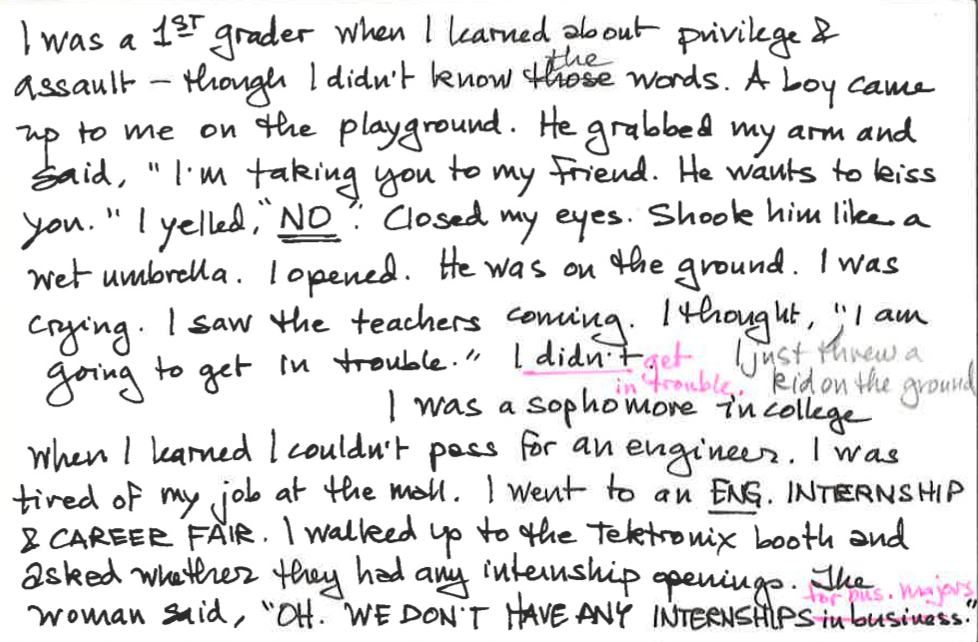 I was a 1ST grader when I learned about privilege &
the
assault – though I didn't know those words. A boy came
up to me on the playground. He grabbed my arm and
said, "I'm taking you to my friend. He wants to kiss
you." I yelled, "NO". Closed my eyes. Shook him like a
wet umbrella. I opened. He was on the ground. I was
crying. I saw the teachers coming. I thought, "I am
going to get in trouble." I didn't get I just threw a
in trouble. kid on the ground
I was a sophomore in college
when I learned I couldn't pass for an engineer. I was
tired of my job at the mall. I went to an ENG. INTERNSHIP
& CAREER FAIR. I walked up to the Tektronix booth and
asked whether they had any internship openings. The
for bus. majors
woman said, "OH. WE DON'T HAVE ANY INTERNSHIPS in business."